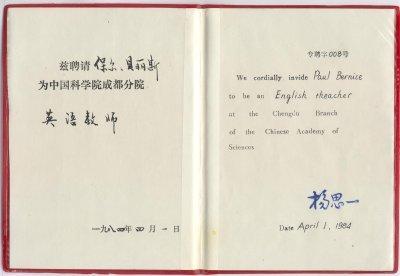 兹聘请 保尔、贝丽斯
为中国科学院成都分院
英语教师
一九八四年四月一日
专聘字008号
We cordially invide Paul Bernice
to be an English theacher
at the Chengdu Branch
of the Chinese Academy of
Sciences
杨思一
Date April 1, 1984